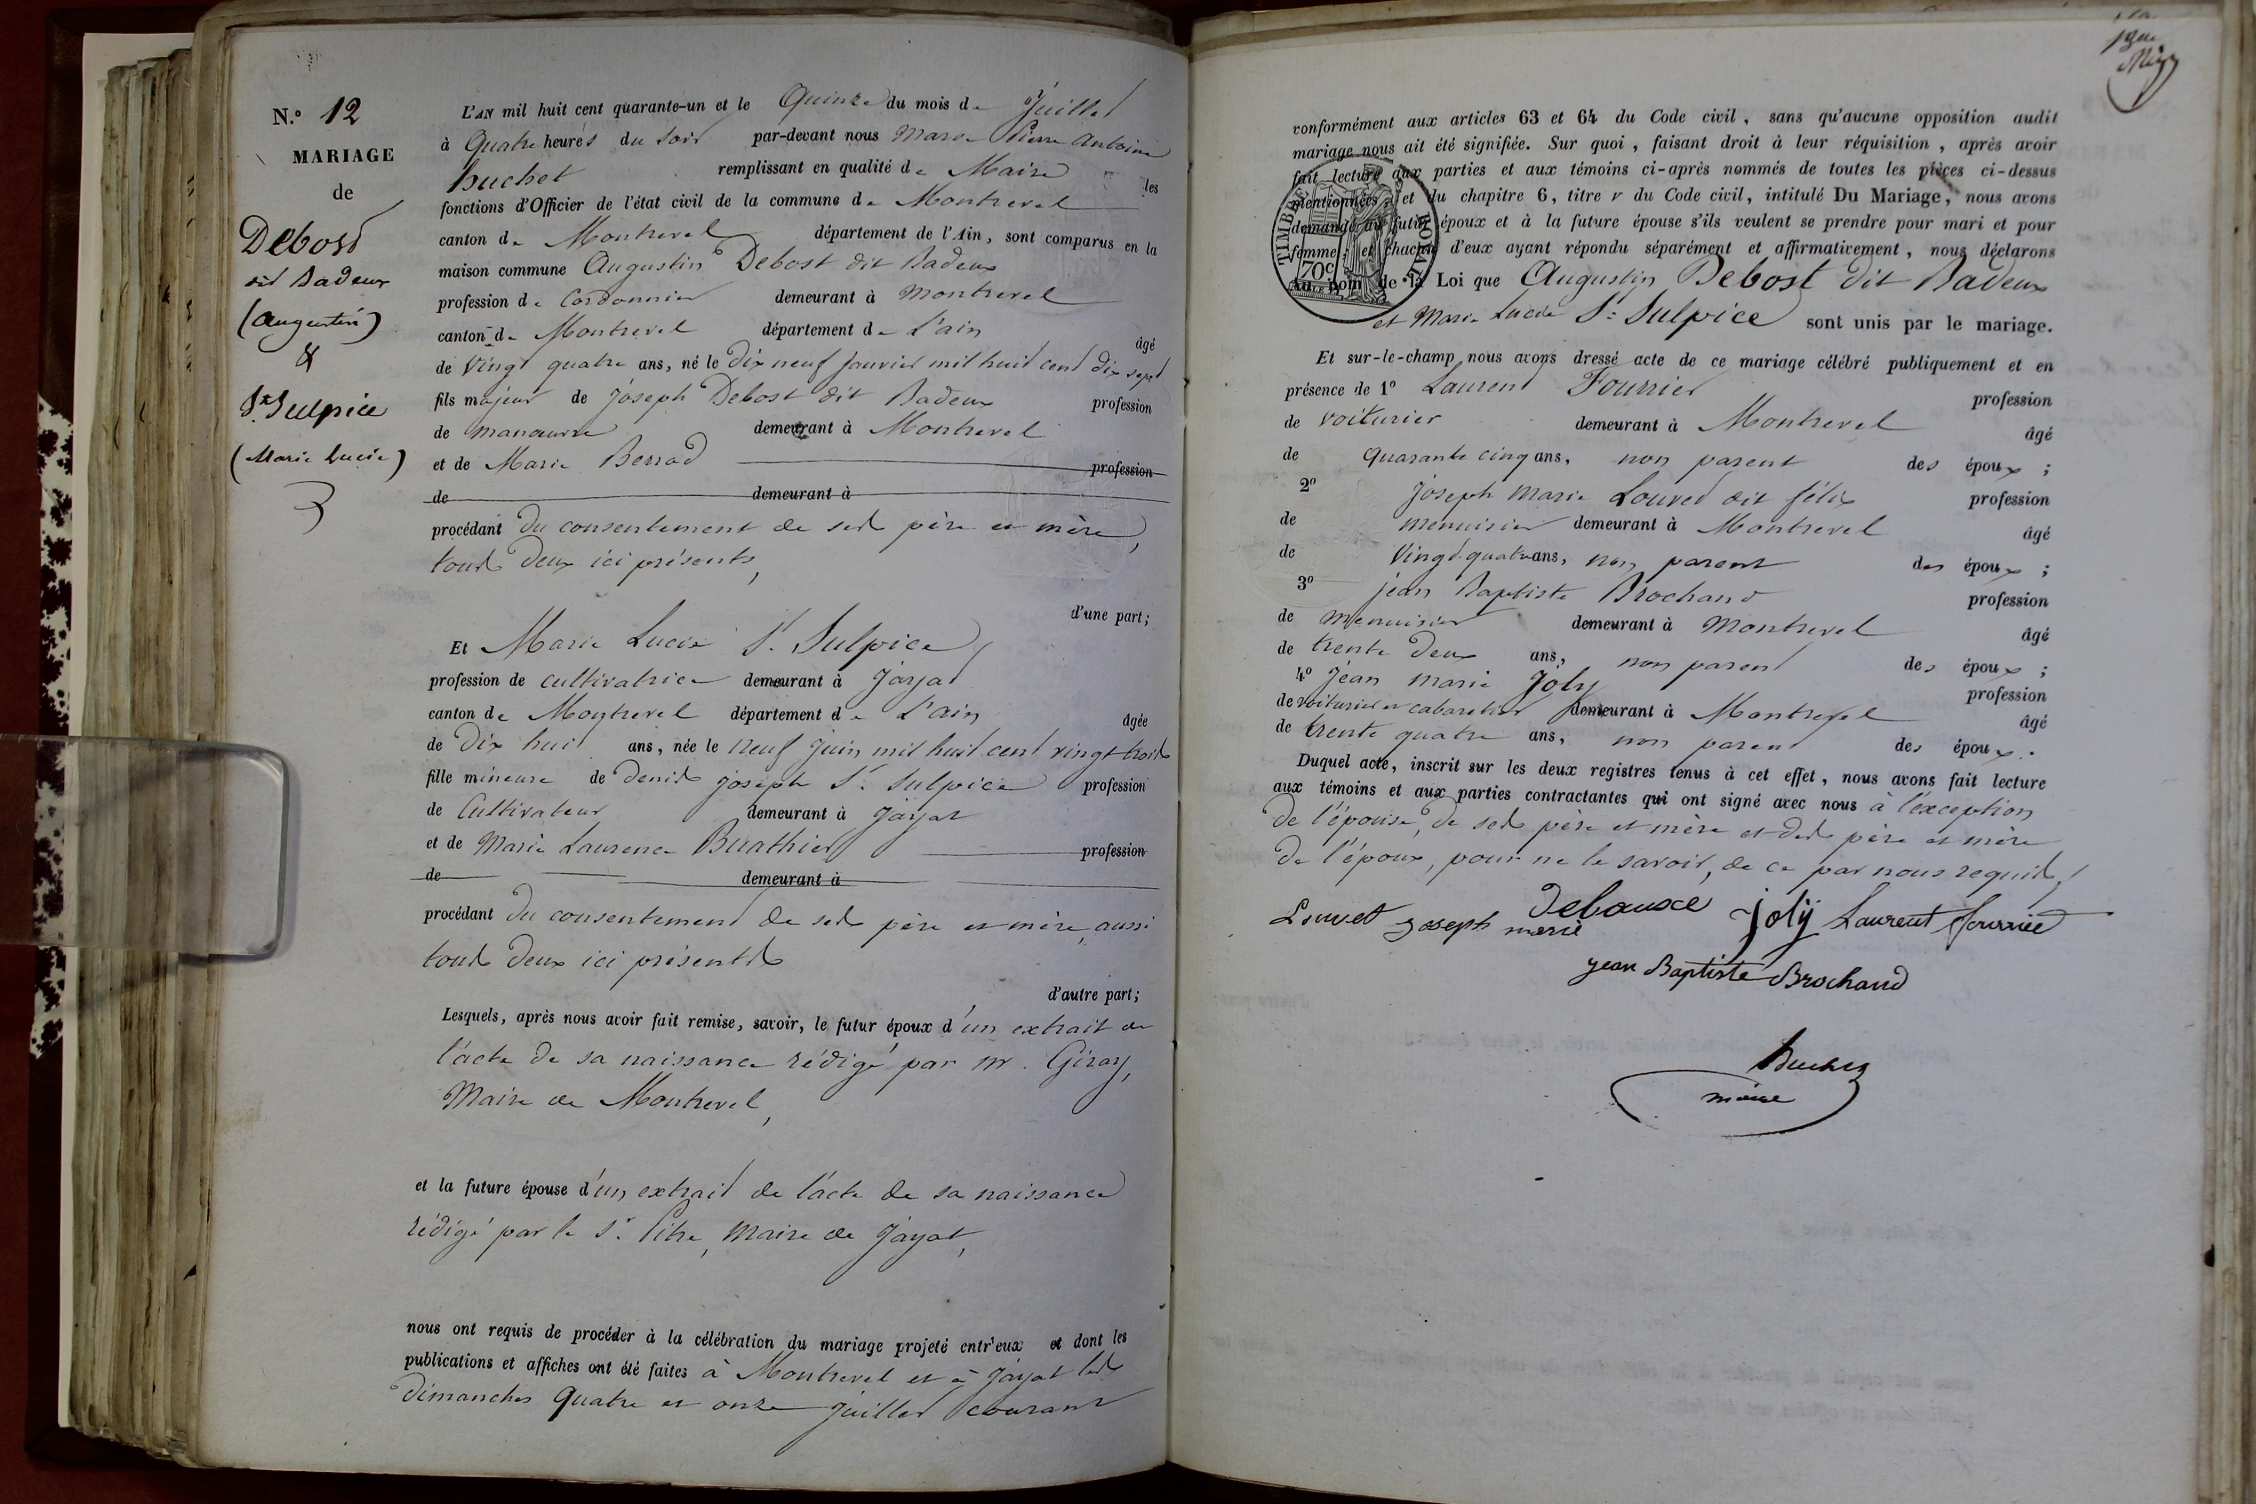 N.º 12
MARIAGE
de
Debost
dit Badeux
(Augustin)
&
St. Sulpice
(Marie Lucie)
L'AN mil huit cent quarante-un et le Quinze du mois de Juillet
à Quatre heures du soir par-devant nous Marie Pierre Antoine
buchet remplissant en qualité de Maire les
fonctions d'Officier de l'état civil de la commune de Montrevel
canton de Montrevel département de l'Ain, sont comparus en la
maison commune Augustin Debost dit Badeux
profession de Cordonnier demeurant à Montrevel
canton de Montrevel département de L'ain âgé
de Vingt quatre ans, né le Dix neuf Janvier mil huit cent dix sept
fils majeur de Joseph Debost dit Badeux profession
de manœuvre demeurant à Montrevel
et de Marie Berrod profession
de demeurant à
procédant du consentement de ses père et mère,
tous deux ici présents,
d'une part;
Et Marie Lucie St. Sulpice
profession de cultivatrice demeurant à Jayat
canton de Montrevel département de L'ain âgée
de Dix huit ans, née le neuf Juin mil huit cent vingt trois
fille mineure de Denis Joseph St. Sulpice profession
de Cultivateur demeurant à Jayat
et de Marie Laurence Buathier profession
de demeurant à
procédant du consentement de ses père et mère, aussi
tous deux ici présents
d'autre part;
Lesquels, après nous avoir fait remise, savoir, le futur époux d'un extrait de
l'acte de sa naissance rédigé par mr. Giray,
Maire de Montrevel,
et la future épouse d'un extrait de l'acte de sa naissance
rédigé par le Sr. Pitre, Maire de Jayat,
nous ont requis de procéder à la célébration du mariage projeté entr'eux et dont les
publications et affiches ont été faites à Montrevel et à Jayat les
dimanches Quatre et onze Juillet courant
conformément aux articles 63 et 64 du Code civil, sans qu'aucune opposition audit
mariage nous ait été signifiée. Sur quoi, faisant droit à leur réquisition, après avoir
fait lecture aux parties et aux témoins ci-après nommés de toutes les pièces ci-dessus
mentionnées, et du chapitre 6, titre v du Code civil, intitulé Du Mariage, nous avons
demandé au futur époux et à la future épouse s'ils veulent se prendre pour mari et pour
femme; et chacun d'eux ayant répondu séparément et affirmativement, nous déclarons
Au nom de la Loi que Augustin Debost dit Badeux
et Marie Lucie St. Sulpice sont unis par le mariage.
TIMBRE ROYAL
70c
Et sur-le-champ nous avons dressé acte de ce mariage célébré publiquement et en
présence de 1º Laurent Fourrier profession
de voiturier demeurant à Montrevel âgé
de quarante cinq ans, non parent des époux;
2º Joseph Marie Louvet dit félix profession
de menuisier demeurant à Montrevel âgé
de Vingt-quatre ans, non parent des époux;
3º jean Baptiste Brochand profession
de menuisier demeurant à Montrevel âgé
de trente deux ans, non parent des époux;
4º Jean marie Joly profession
de voiturier et cabaretier demeurant à Montrevel âgé
de trente quatre ans, non parent des époux.
Duquel acte, inscrit sur les deux registres tenus à cet effet, nous avons fait lecture
aux témoins et aux parties contractantes qui ont signé avec nous à l'exception
de l'épouse, de ses père et mère et des père et mère
de l'époux, pour ne le savoir, de ce par nous requis.
Louvet Joseph marie Debausce Joly Laurent fourrier
jean Baptiste Brochand
Buchet
maire